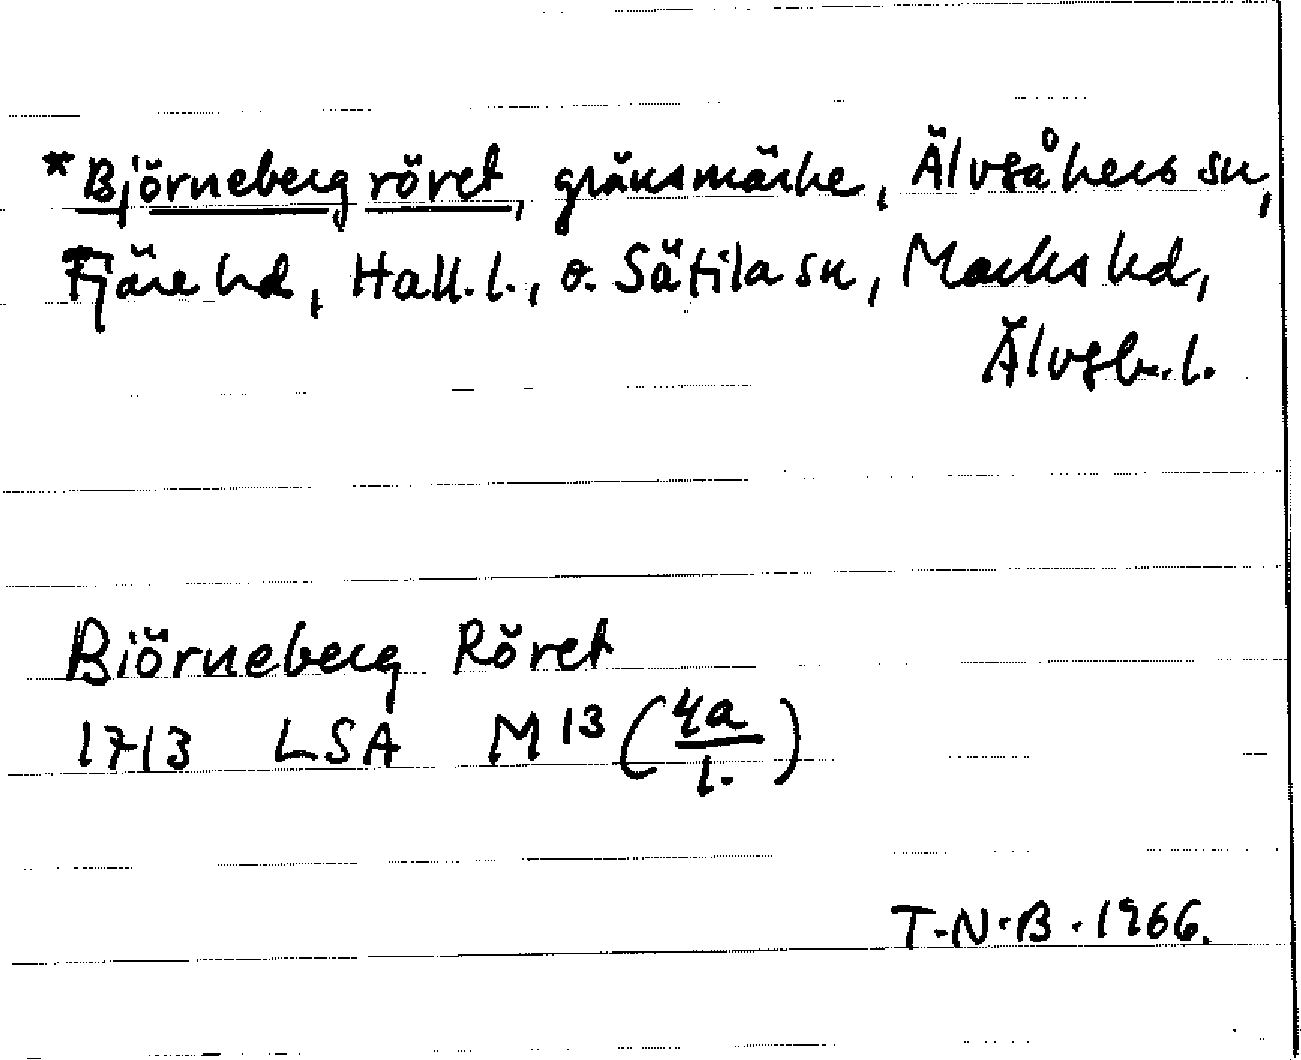 *Björneberg röret, gränsmärke, Älvsåkers sn,
Fjäre hd, Hall. l., o. Sätila sn, Marks hd,
Älvsb. l.
Biörneberg Röret
1713 LSA M 13 (4a/1.)
T.N.B. 1966.